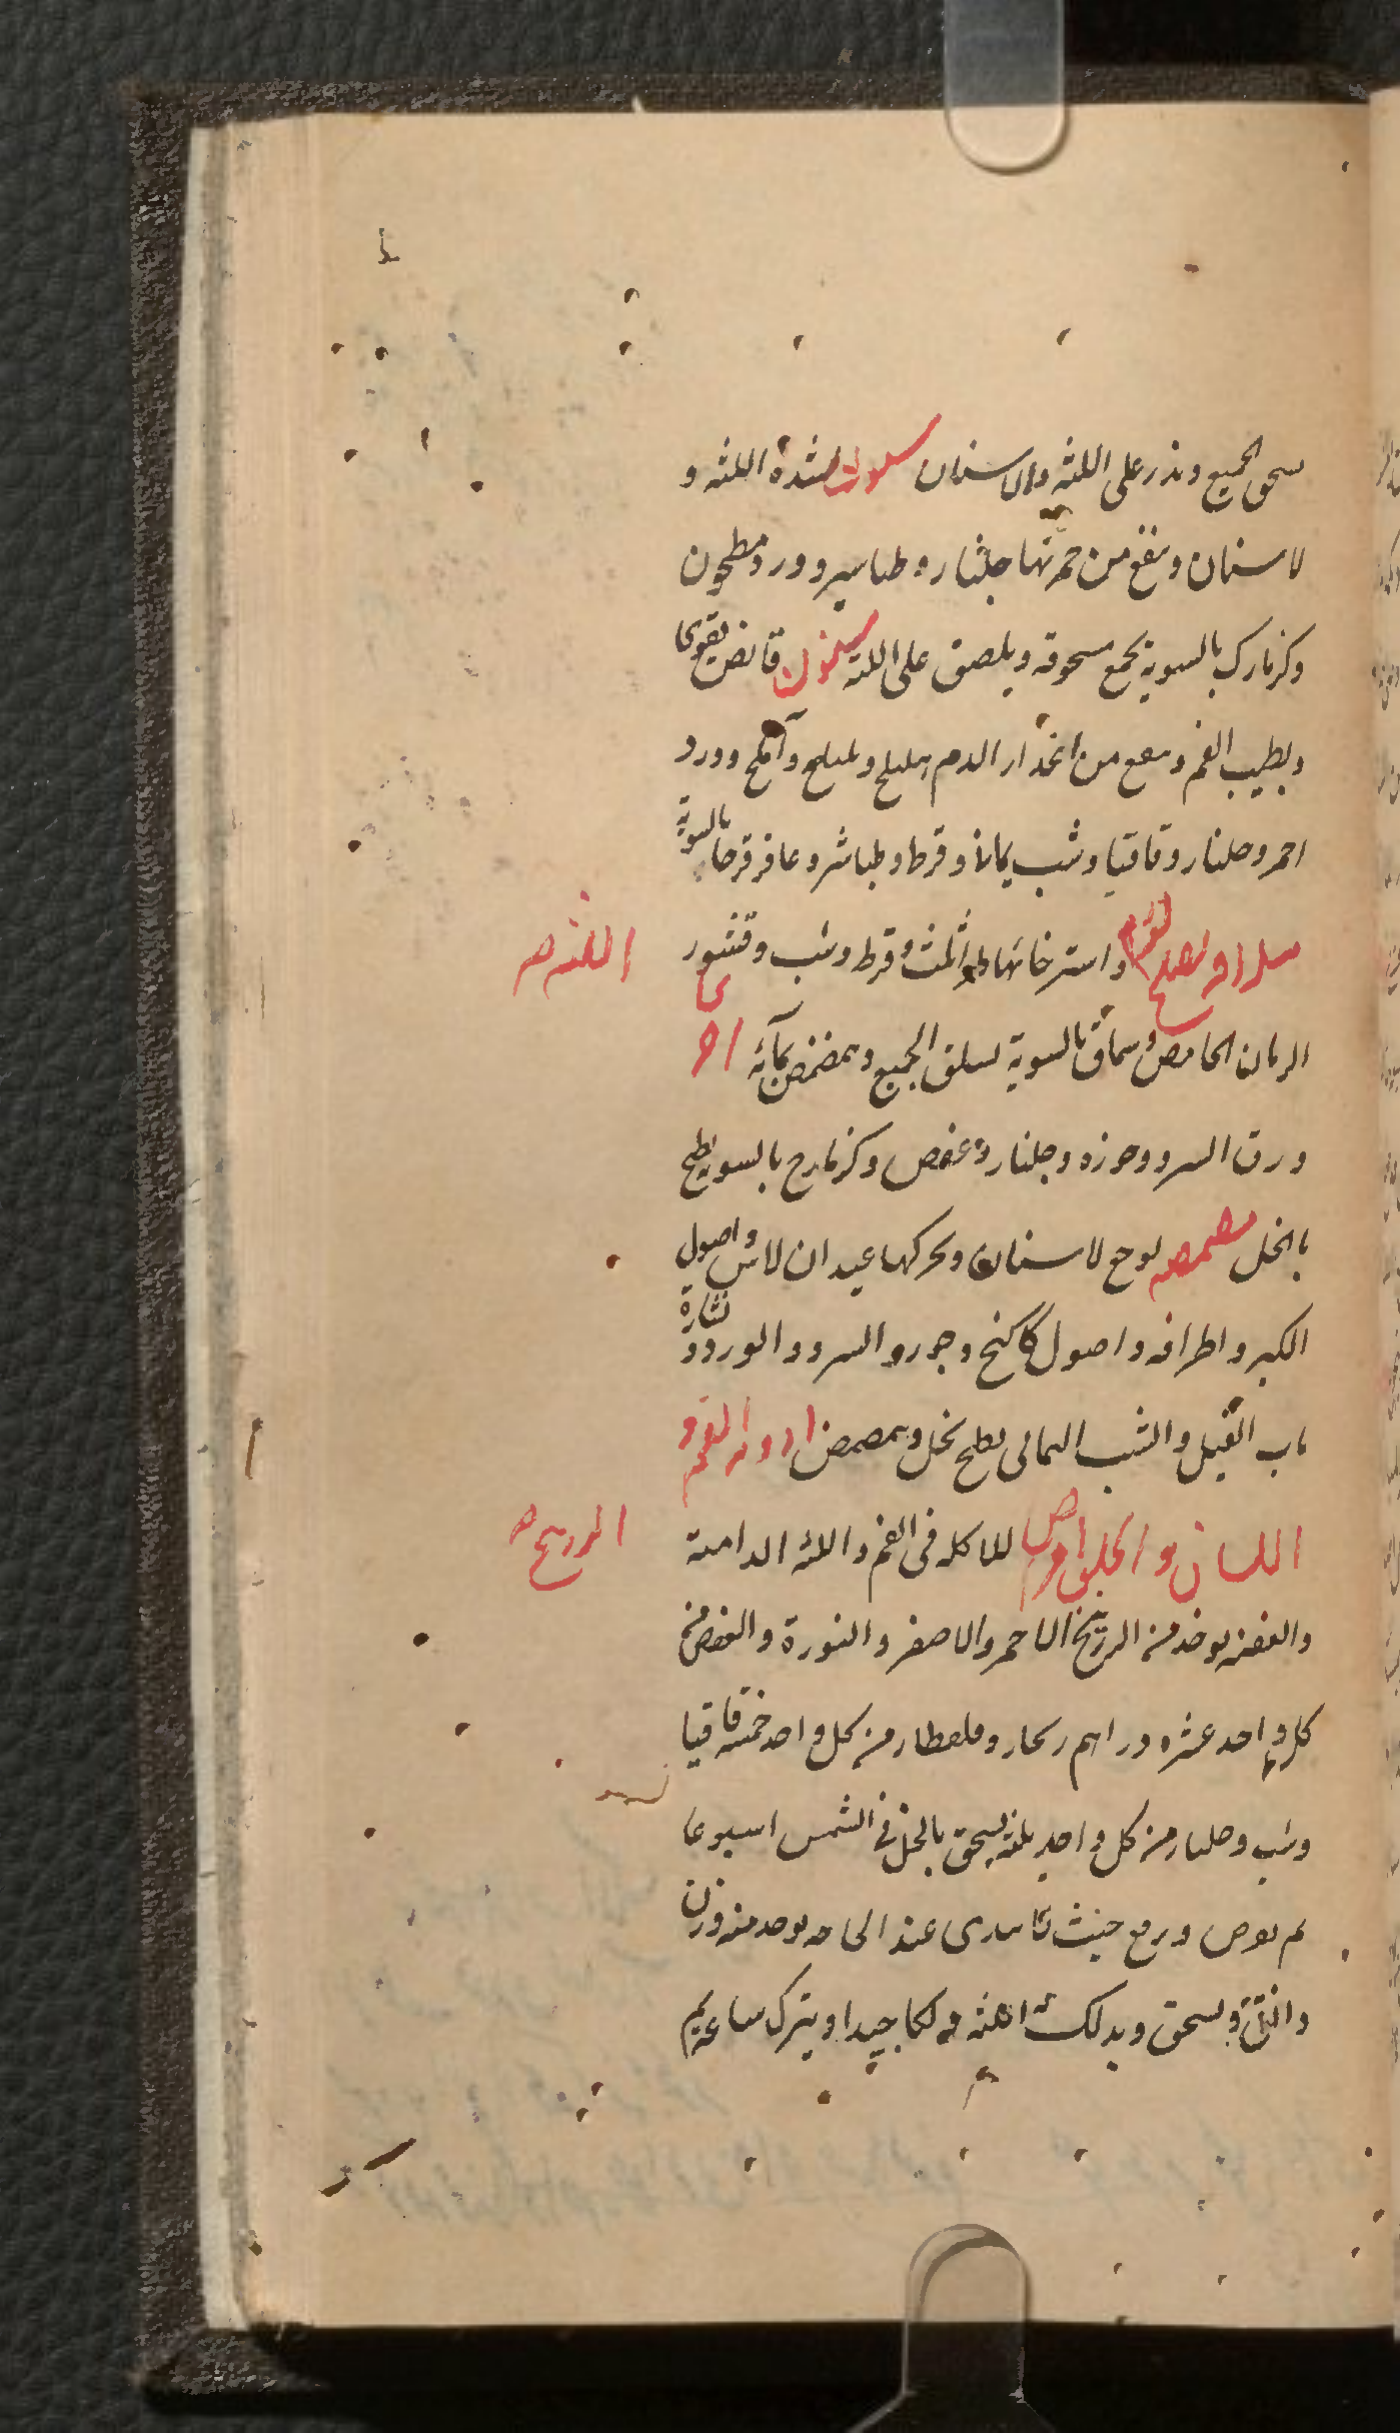 سحق الجميع ويذر على اللثة والاسنان سنون لشدة اللثه و
لاسنان وينفع من حمرتها جلنار وطباسير وورد مطحون
وكزمازك بالسوية يجمع مسحوقه ويلصق على اللثه سنون قابض يقوى
ويطيب الفم وينفع من انحدار الدم هليلج وبليلج وآملج وورد
احمر وجلنار وقاقيا وشب يمانى وقرط وطباشر وعاقرقرحا بالسوية
واسترخائها ثلث وقرط وشب وقشور
اللثه
الرمان الحامض وسماق بالسوية يسلق الجميع ويمضمض بمائه اخر
ورق السرو وجوزه وجلنار وعفص وكزمازج بالسويه يطبخ
بالخل مضمضه لوجع لاسنان وتحركها عيدان لاس واصول
الكبر واطرافه واصول كاكنج وجوز السرو والورد ونشارة
ناب الفيل والشب اليمانى يطبخ بخل ويمضمض ادوية الفم و
اللسان والحلق اقراص للاكله فى الفم واللثه الدامية
الزرنيخ
والعفنه يوخذ من الزرنيخ الاحمر والاصفر والنورة والعفص من
كل واحد عشره دراهم زنجار وقلقطار من كل واحد خمسه قاقيا
وشب وجلنار من كل واحد ثلثه يسحق بالخل فى الشمس اسبوعا
ثم يقرص ويرفع عند الحاجه يوخذ منه وزن
دانقين ويسحق ويدلك اللثه دلكا جيدا ويترك ساعه ثم